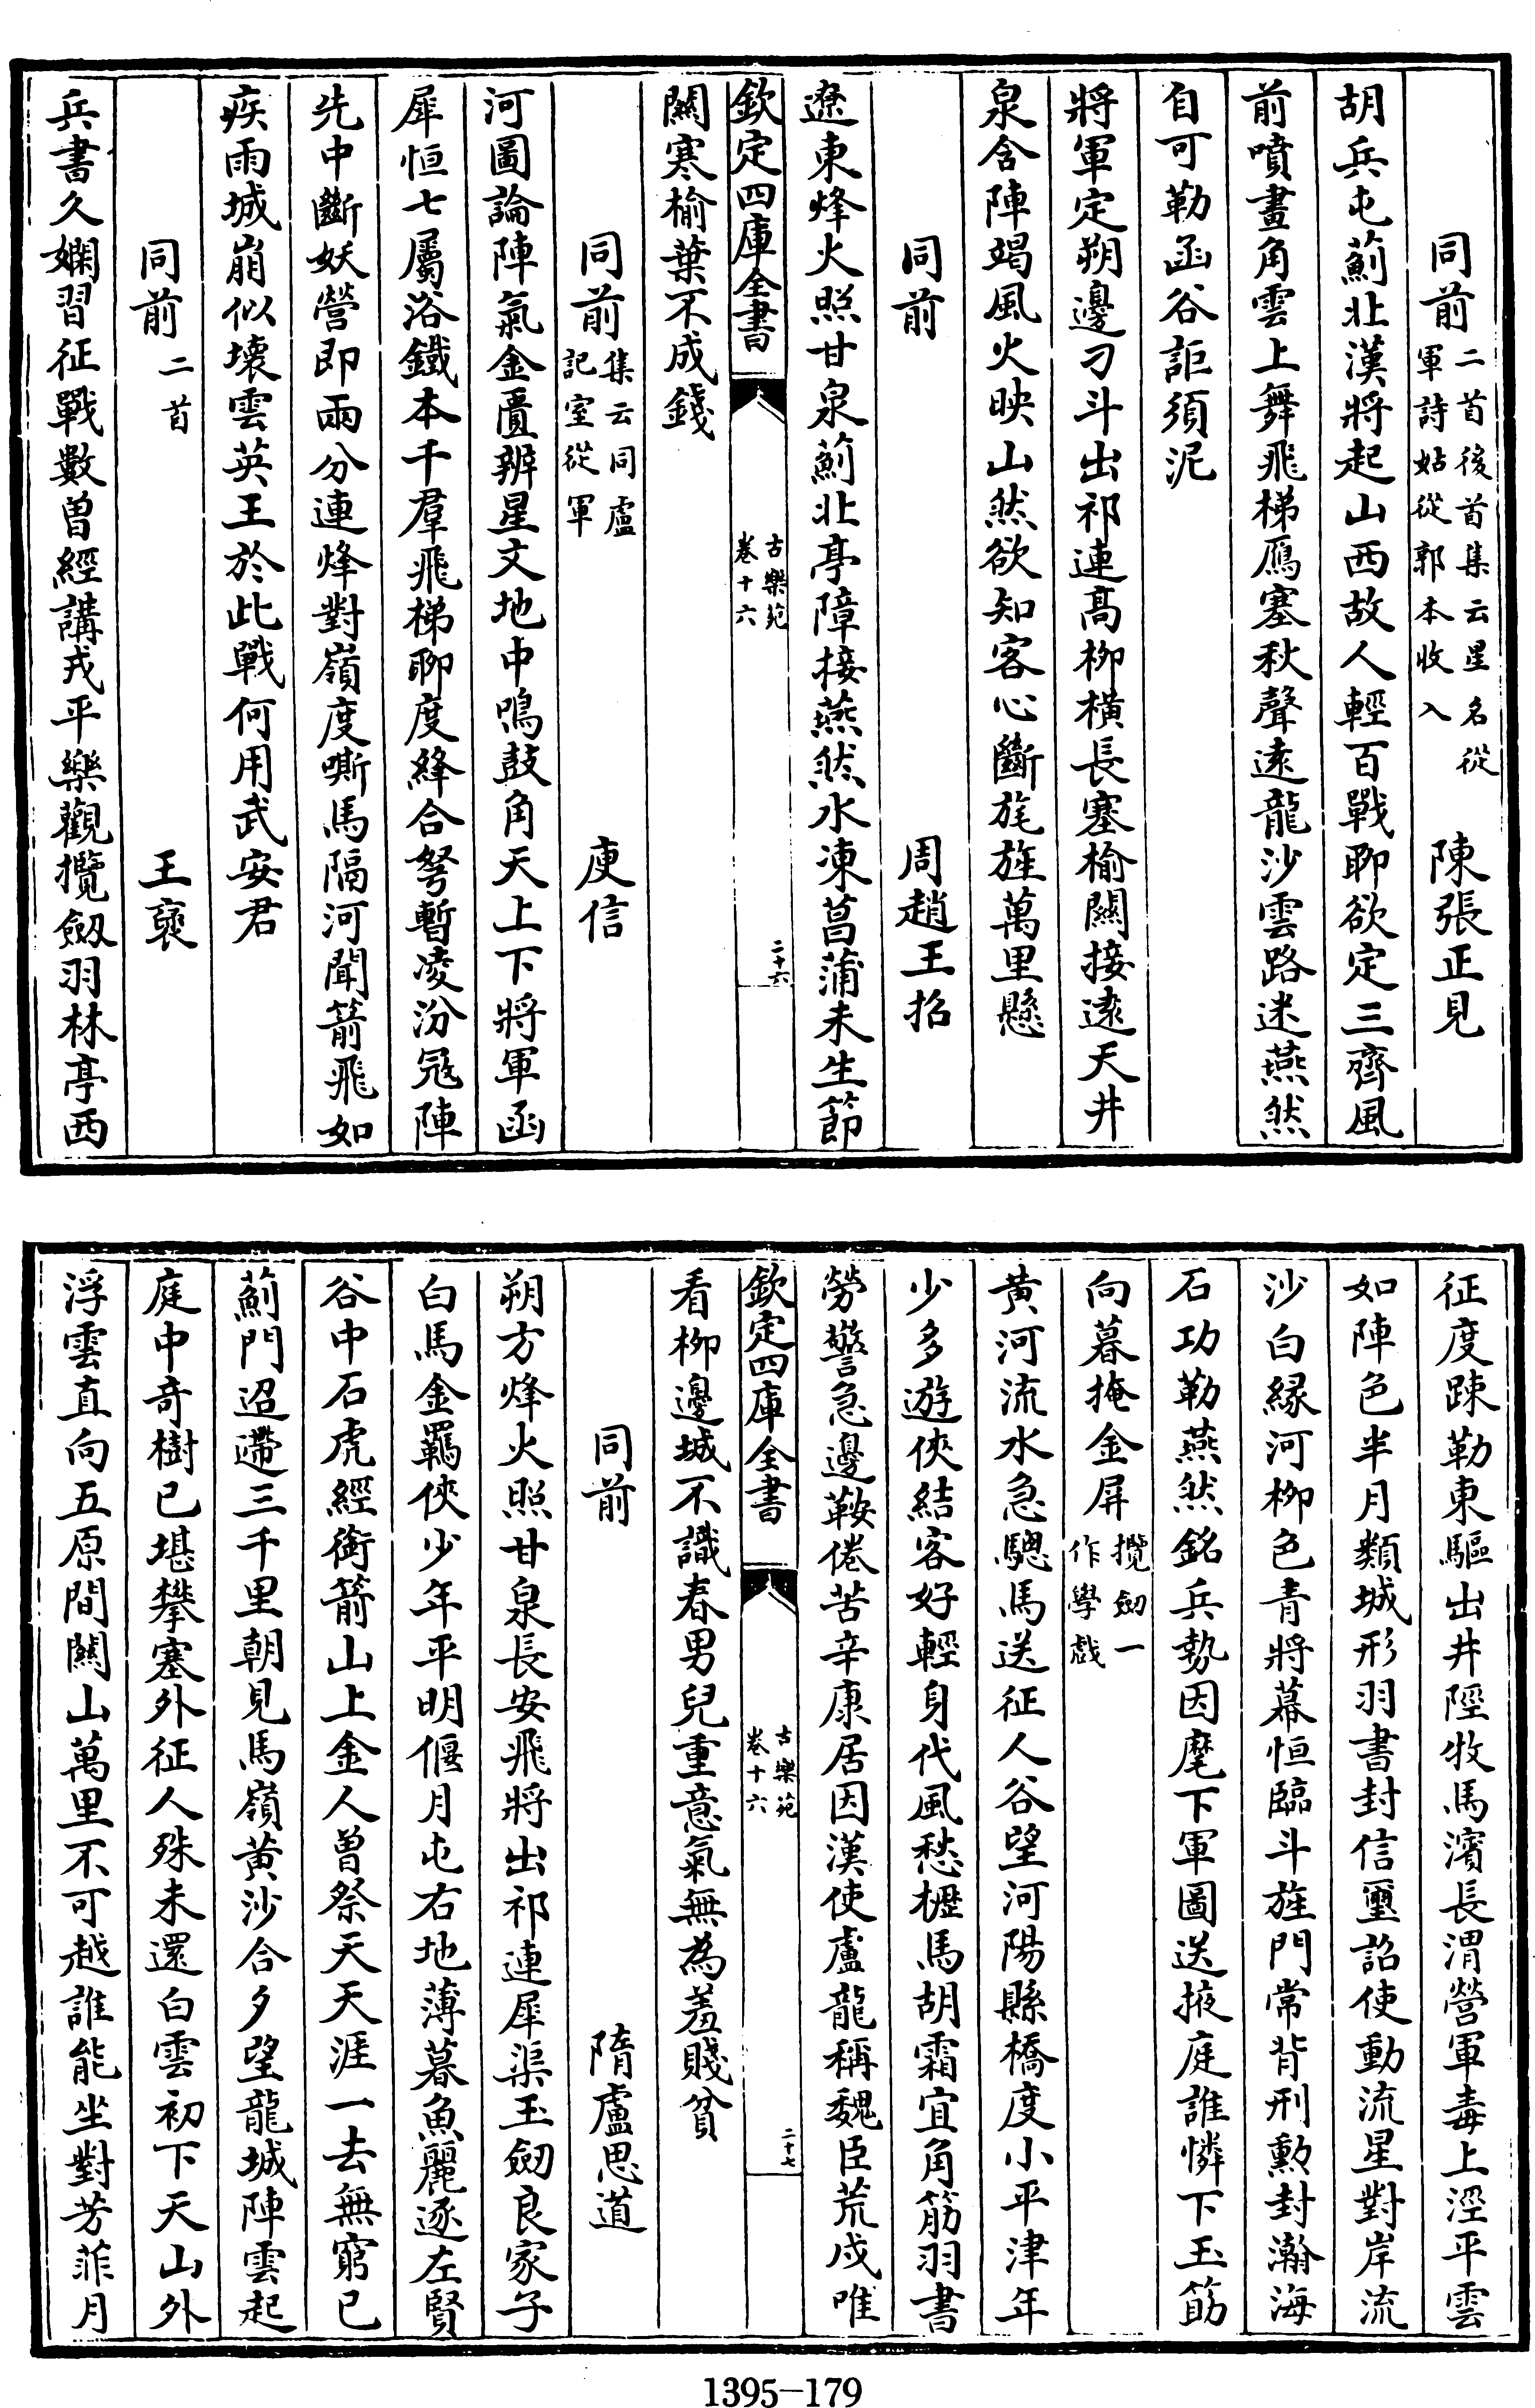 同前 二首後首集云星名從軍詩姑從郭本收入 陳張正見
胡兵屯薊北漢將起山西故人輕百戰聊欲定三齊風
前噴畫角雲上舞飛梯鴈塞秋聲逺龍沙雲路迷燕然
自可勒函谷詎須泥
將軍定朔邊刁斗出祁連髙栁橫長塞榆闗接逺天井
泉含陣竭風火映山然欲知客心斷旄旌萬里懸
同前 周趙王招
遼東烽火照甘泉薊北亭障接燕然水凍菖蒲未生節
欽定四庫全書 古樂苑 卷十六 二十六
闗寒榆葉不成錢
同前 集云同盧記室從軍 庾信
河圖論陣氣金匱辨星文地中鳴鼓角天上下將軍函
犀恒七屬浴鐵本千羣飛梯聊度絳合弩暫凌汾冦陣
先中斷妖營即兩分連烽對嶺度嘶馬隔河聞箭飛如
疾雨城崩似壊雲英王於此戰何用武安君
同前 二首 王襃
兵書久嫻習征戰數曽經講戎平樂觀攬劔羽林亭西
征度踈勒東驅出井陘牧馬濱長渭營軍毒上涇平雲
如陣色半月類城形羽書封信璽詔使動流星對岸流
沙白縁河栁色青將幕恒臨斗旌門常背刑勲封瀚海
石功勒燕然銘兵勢因麾下軍圖送掖庭誰憐下玉筯
向暮掩金屏 攬劔一作學戲
黄河流水急驄馬送征人谷望河陽縣橋度小平津年
少多遊俠結客好輕身代風愁櫪馬胡霜宜角筋羽書
勞警急邊鞍倦苦辛康居因漢使盧龍稱魏臣荒戍唯
欽定四庫全書 古樂苑 卷十六 二十七
看栁邊城不識春男兒重意氣無為羞賤貧
同前 隋盧思道
朔方烽火照甘泉長安飛將出祁連犀渠玉劔良家子
白馬金羈俠少年平明偃月屯右地薄暮魚麗逐左賢
谷中石虎經銜箭山上金人曽祭天天涯一去無窮已
薊門迢遰三千里朝見馬嶺黄沙合夕望龍城陣雲起
庭中奇樹已堪攀塞外征人殊未還白雲初下天山外
浮雲直向五原間闗山萬里不可越誰能坐對芳菲月
1395-179